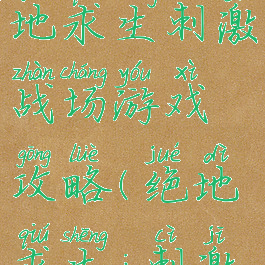 地求生刺激
zhàn chǎng yóu xì
战场游戏
gōng lüè jué dì
攻略(绝地
qiú shēng cì jī
求生:刺激